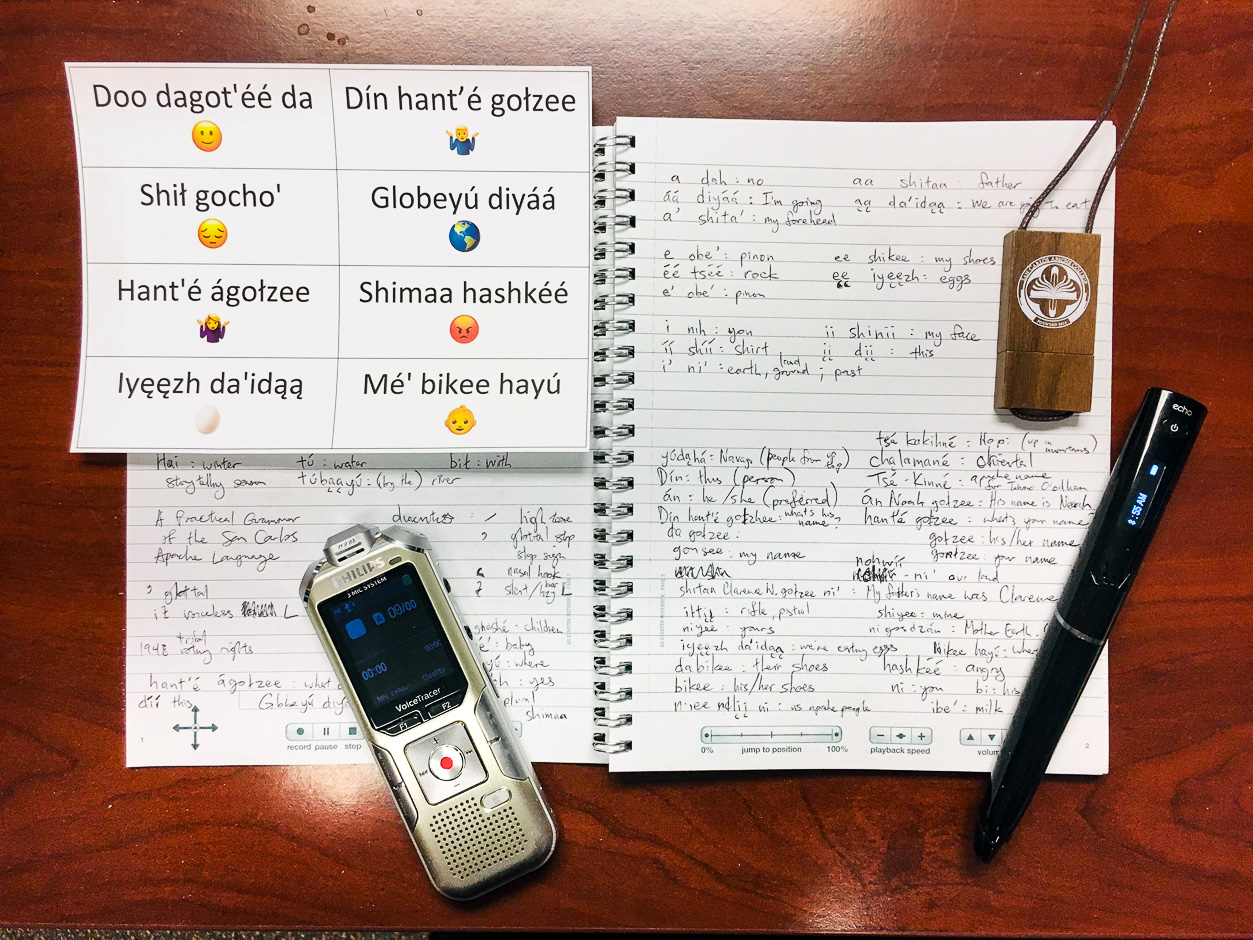 Doo dagot'éé da
Dín hant'é gołzee
Shił gocho'
Globeyú diyáá
Hant'é ágołzee
Shimaa hashkéé
Iyęęzh da'idąą
Mé' bikee hayú
Hai : winter
tú : water
bił : with
storytelling season
túbąąyú : (by the) river
A Practical Grammar
of the San Carlos
Apache Language
diacritics
high tone
glottal stop
stop sign
nasal hook
L
ʼ glottal
ł voiceless L
tribal
voting rights
: children
: baby
: where
: yes
plural
shimaa
hant'é ágołzee : what
díí this
record pause stop
1
PHILIPS
3 MIC SYSTEM
00/00
00:00
VoiceTracer
F1
F2
a dah : no
áá diyáá : I'm going
a' shita' : my forehead
aa shitaa : father
ąą da'idąą : we are going to eat
e obe' : pinon
éé tséé : rock
e' obe' : pinon
ee shikee : my shoes
ęę iyęęzh : eggs
i nih : you
íí shíí : shirt
land
i' ni' : earth, ground ; past
ii shinii : my face
įį díí : this
: Hopi (up in mountains)
yúdąhá : Navajo (people from up top)
chalamané : Oriental
Dín : this (person)
Tsé-Kinné : apache name
for Tohono O'odham
án : he/she (preferred)
án Noah gołzee : His name is Noah
Dín hant'é gołzhee : what's his name?
hant'é gołzee : what's your name
da gołzee :
gołzee : his/her name
gonsee : my name
gontzee : your name
nohwíí
- ni' our land
shitaa Clarence W. gołzee ni' : My father's name was Clarence
: rifle, pistol
shiyee : mine
niyee : yours
nigosdzán : Mother Earth
iyęęzh da'idąą : we're eating eggs
Nikee hayú : where
dabikee : their shoes
hashkéé : angry
bikee : his/her shoes
ni : you
bi : his
ni : us apache people
ibe' : milk
0%
jump to position
100%
playback speed
2
echo